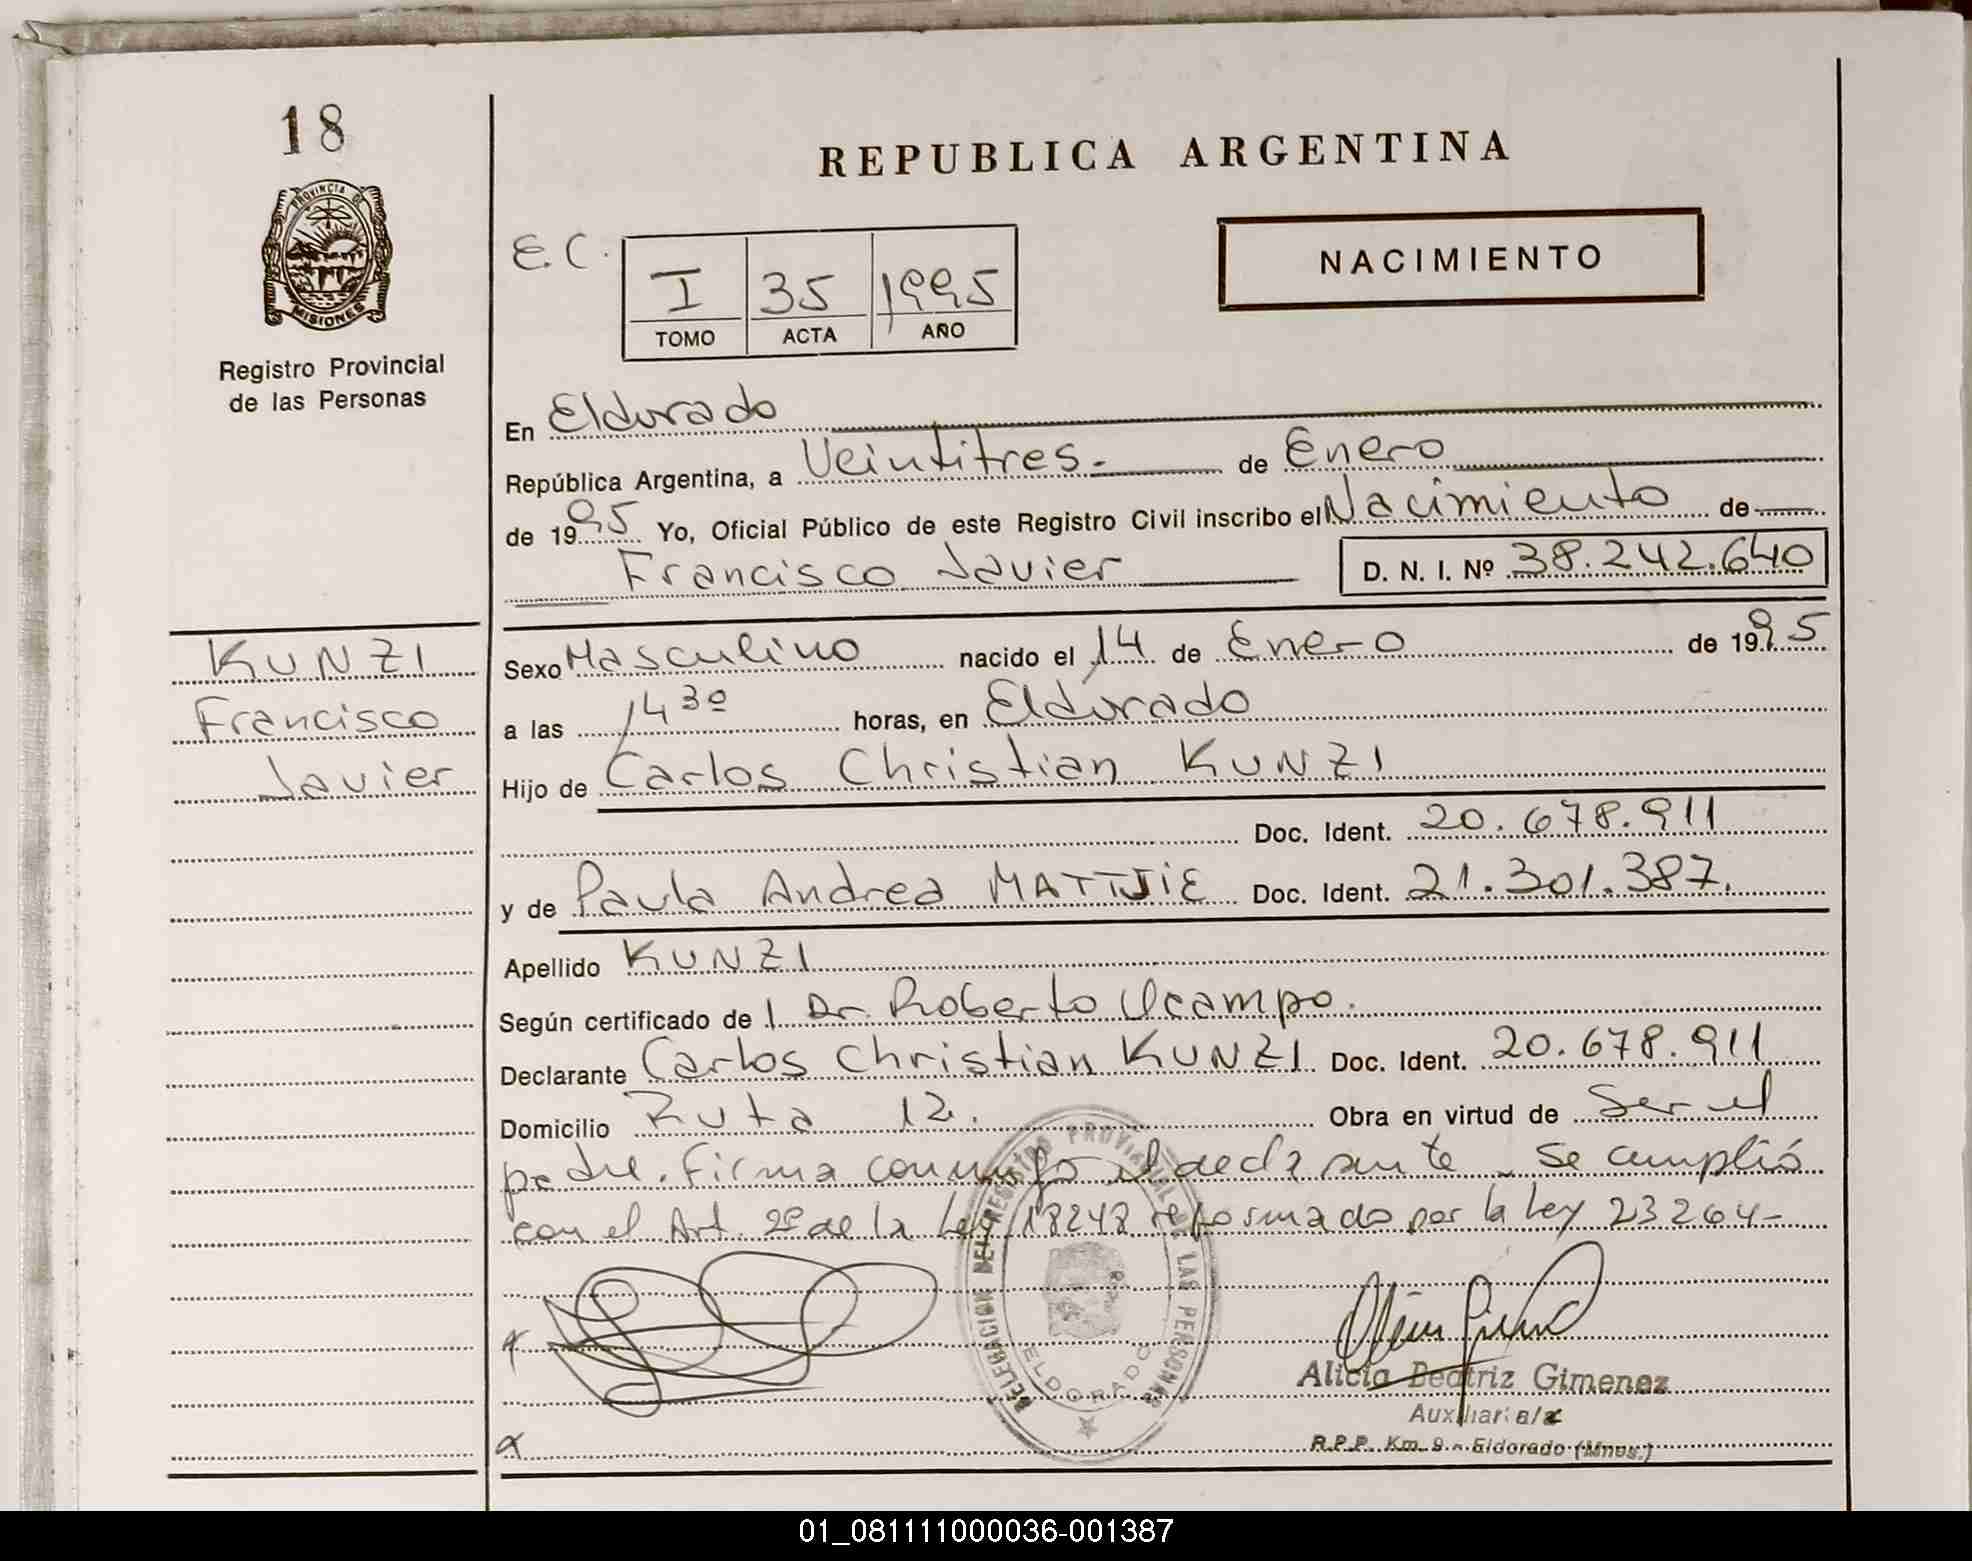 18
PROVINCIA DE
MISIONES
Registro Provincial
de las Personas
REPUBLICA ARGENTINA
E.C.
I 35 1995
TOMO ACTA AÑO
NACIMIENTO
En Eldorado
República Argentina, a Veintitres.- de Enero
de 1995 Yo, Oficial Público de este Registro Civil inscribo el Nacimiento de
Francisco Javier D. N. I. Nº 38.242.640
KUNZI
Francisco
Javier
Sexo Masculino nacido el 14 de Enero de 1995
a las 14 30 horas, en Eldorado
Hijo de Carlos Christian KUNZI
Doc. Ident. 20.678.911
y de Paula Andrea MATTJIE Doc. Ident. 21.301.387.
Apellido KUNZI
Según certificado de l Dr. Roberto Ocampo.
Declarante Carlos Christian KUNZI Doc. Ident. 20.678.911
Domicilio Ruta 12. Obra en virtud de Ser el
padre. Firma conmigo el declarante - Se cumplió
con el Art. 2º de la Ley 18248 reformado por la ley 23264-
DELEGACION DEL REGISTRO PROVINCIAL DE LAS PERSONAS
ELDORADO
Alicia Beatriz Gimenez
Auxiliar a/c
R.P.P. Km. 9 - Eldorado (Mnes.)
01_081111000036-001387